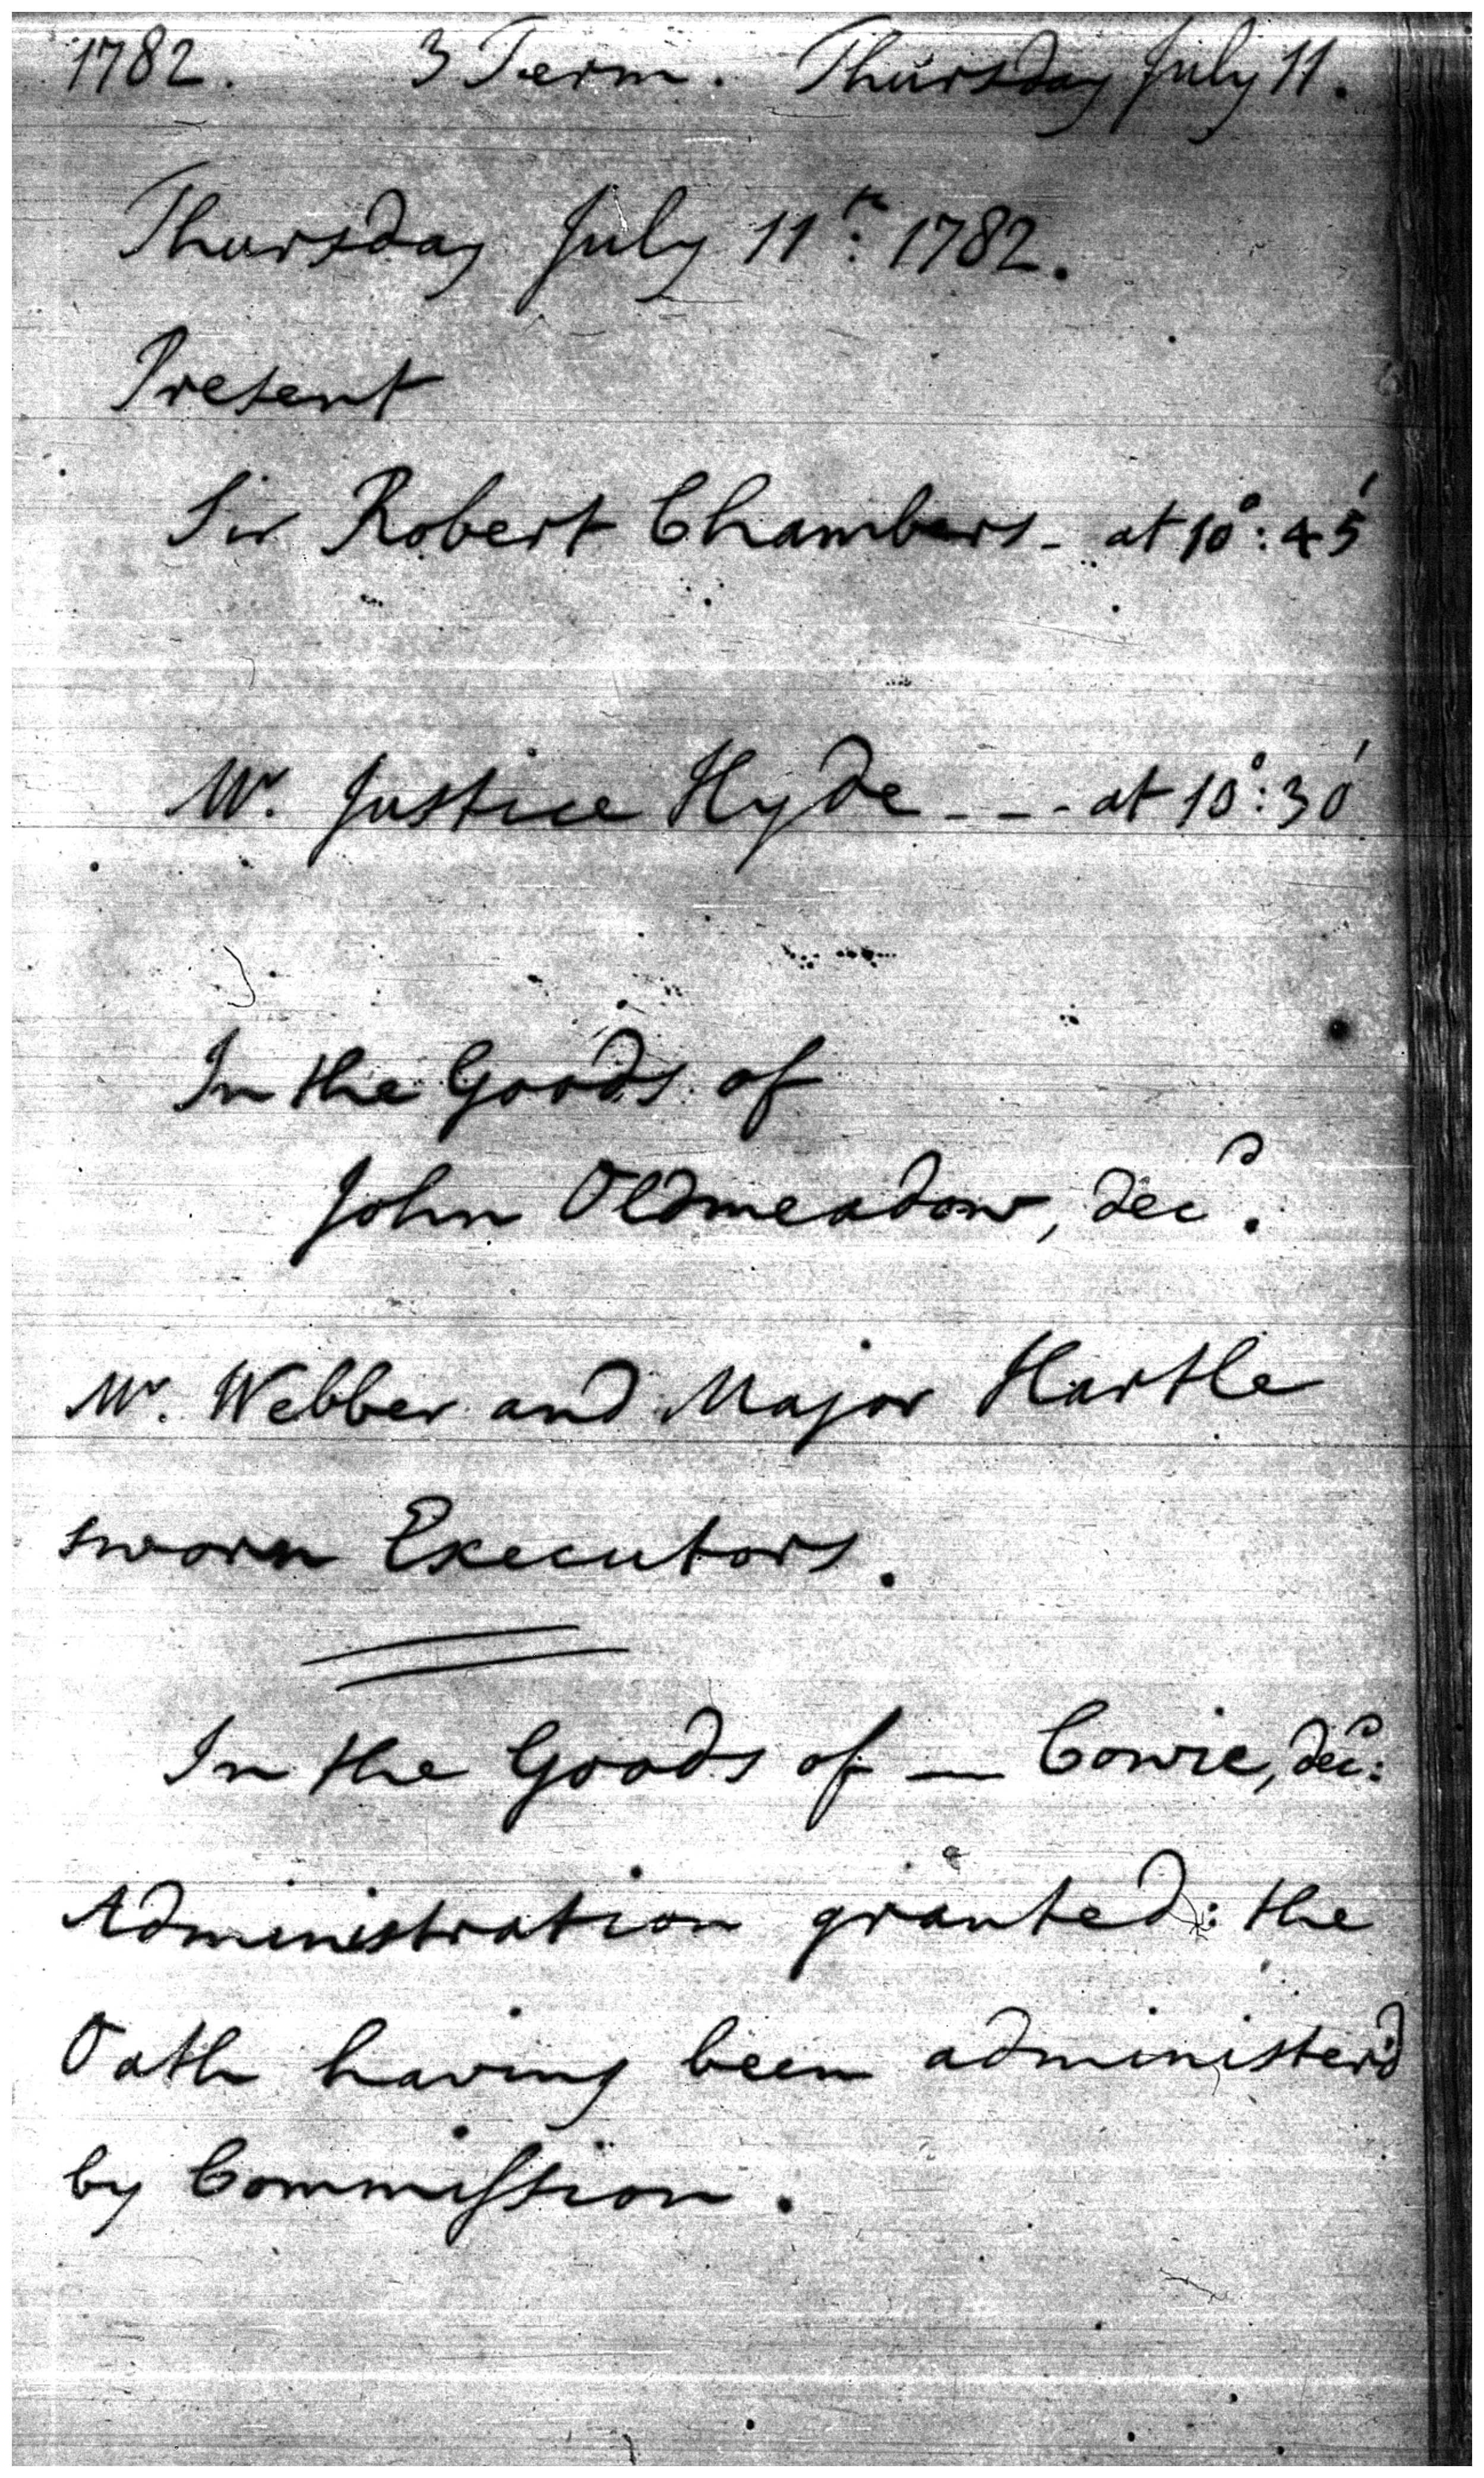 1782. 3 Term. Thursday July 11.
Thursday July 11th: 1782.
Present
Sir Robert Chambers - at 10°: 45'
Mr. Justice Hyde - - - at 10°: 30'
In the Goods of
John Oldmeadow, decd.
Mr. Webber and Major Hartle
sworn Executors.
In the Goods of — Cowie, decd:
Administration granted: the
Oath having been administer'd
by Commiſsion.